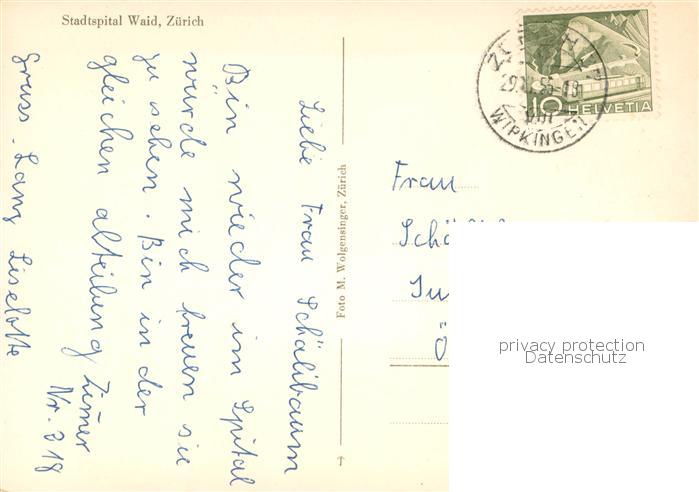 Stadtspital Waid, Zürich
Liebe Frau Schälibaum
Bin wieder im Spital
würde mich freuen sie
zu sehen. Bin in der
gleichen abteilung Zimer
Nr. 318
Gruss. Lanz Liselotte
Foto M. Wolgensinger, Zürich
Frau
Schä
10 HELVETIA
WIPKINGEN
privacy protection
Datenschutz